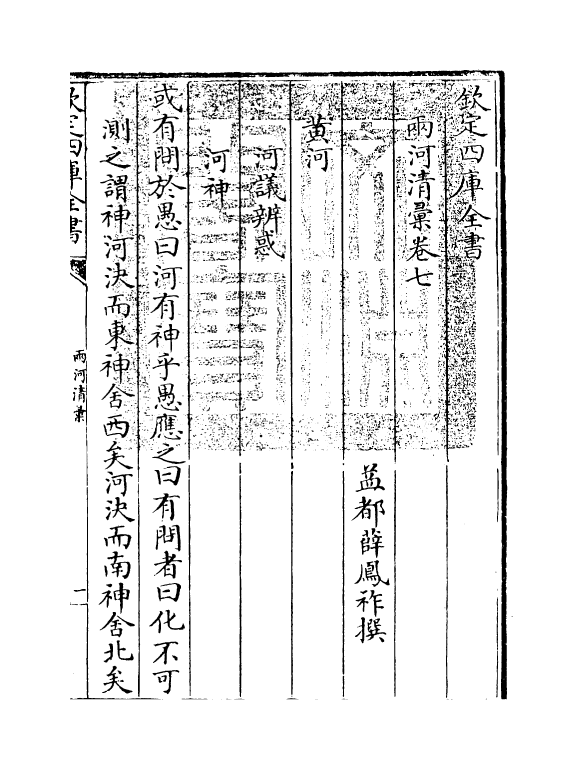 欽定四庫全書
兩河清彙卷七
益都薛鳳祚撰
黄河
河議辨惑
河神
或有問於愚曰河有神乎愚應之曰有問者曰化不可
測之謂神河決而東神舍西矣河決而南神舍北矣
欽定四庫全書
兩河清彙
一